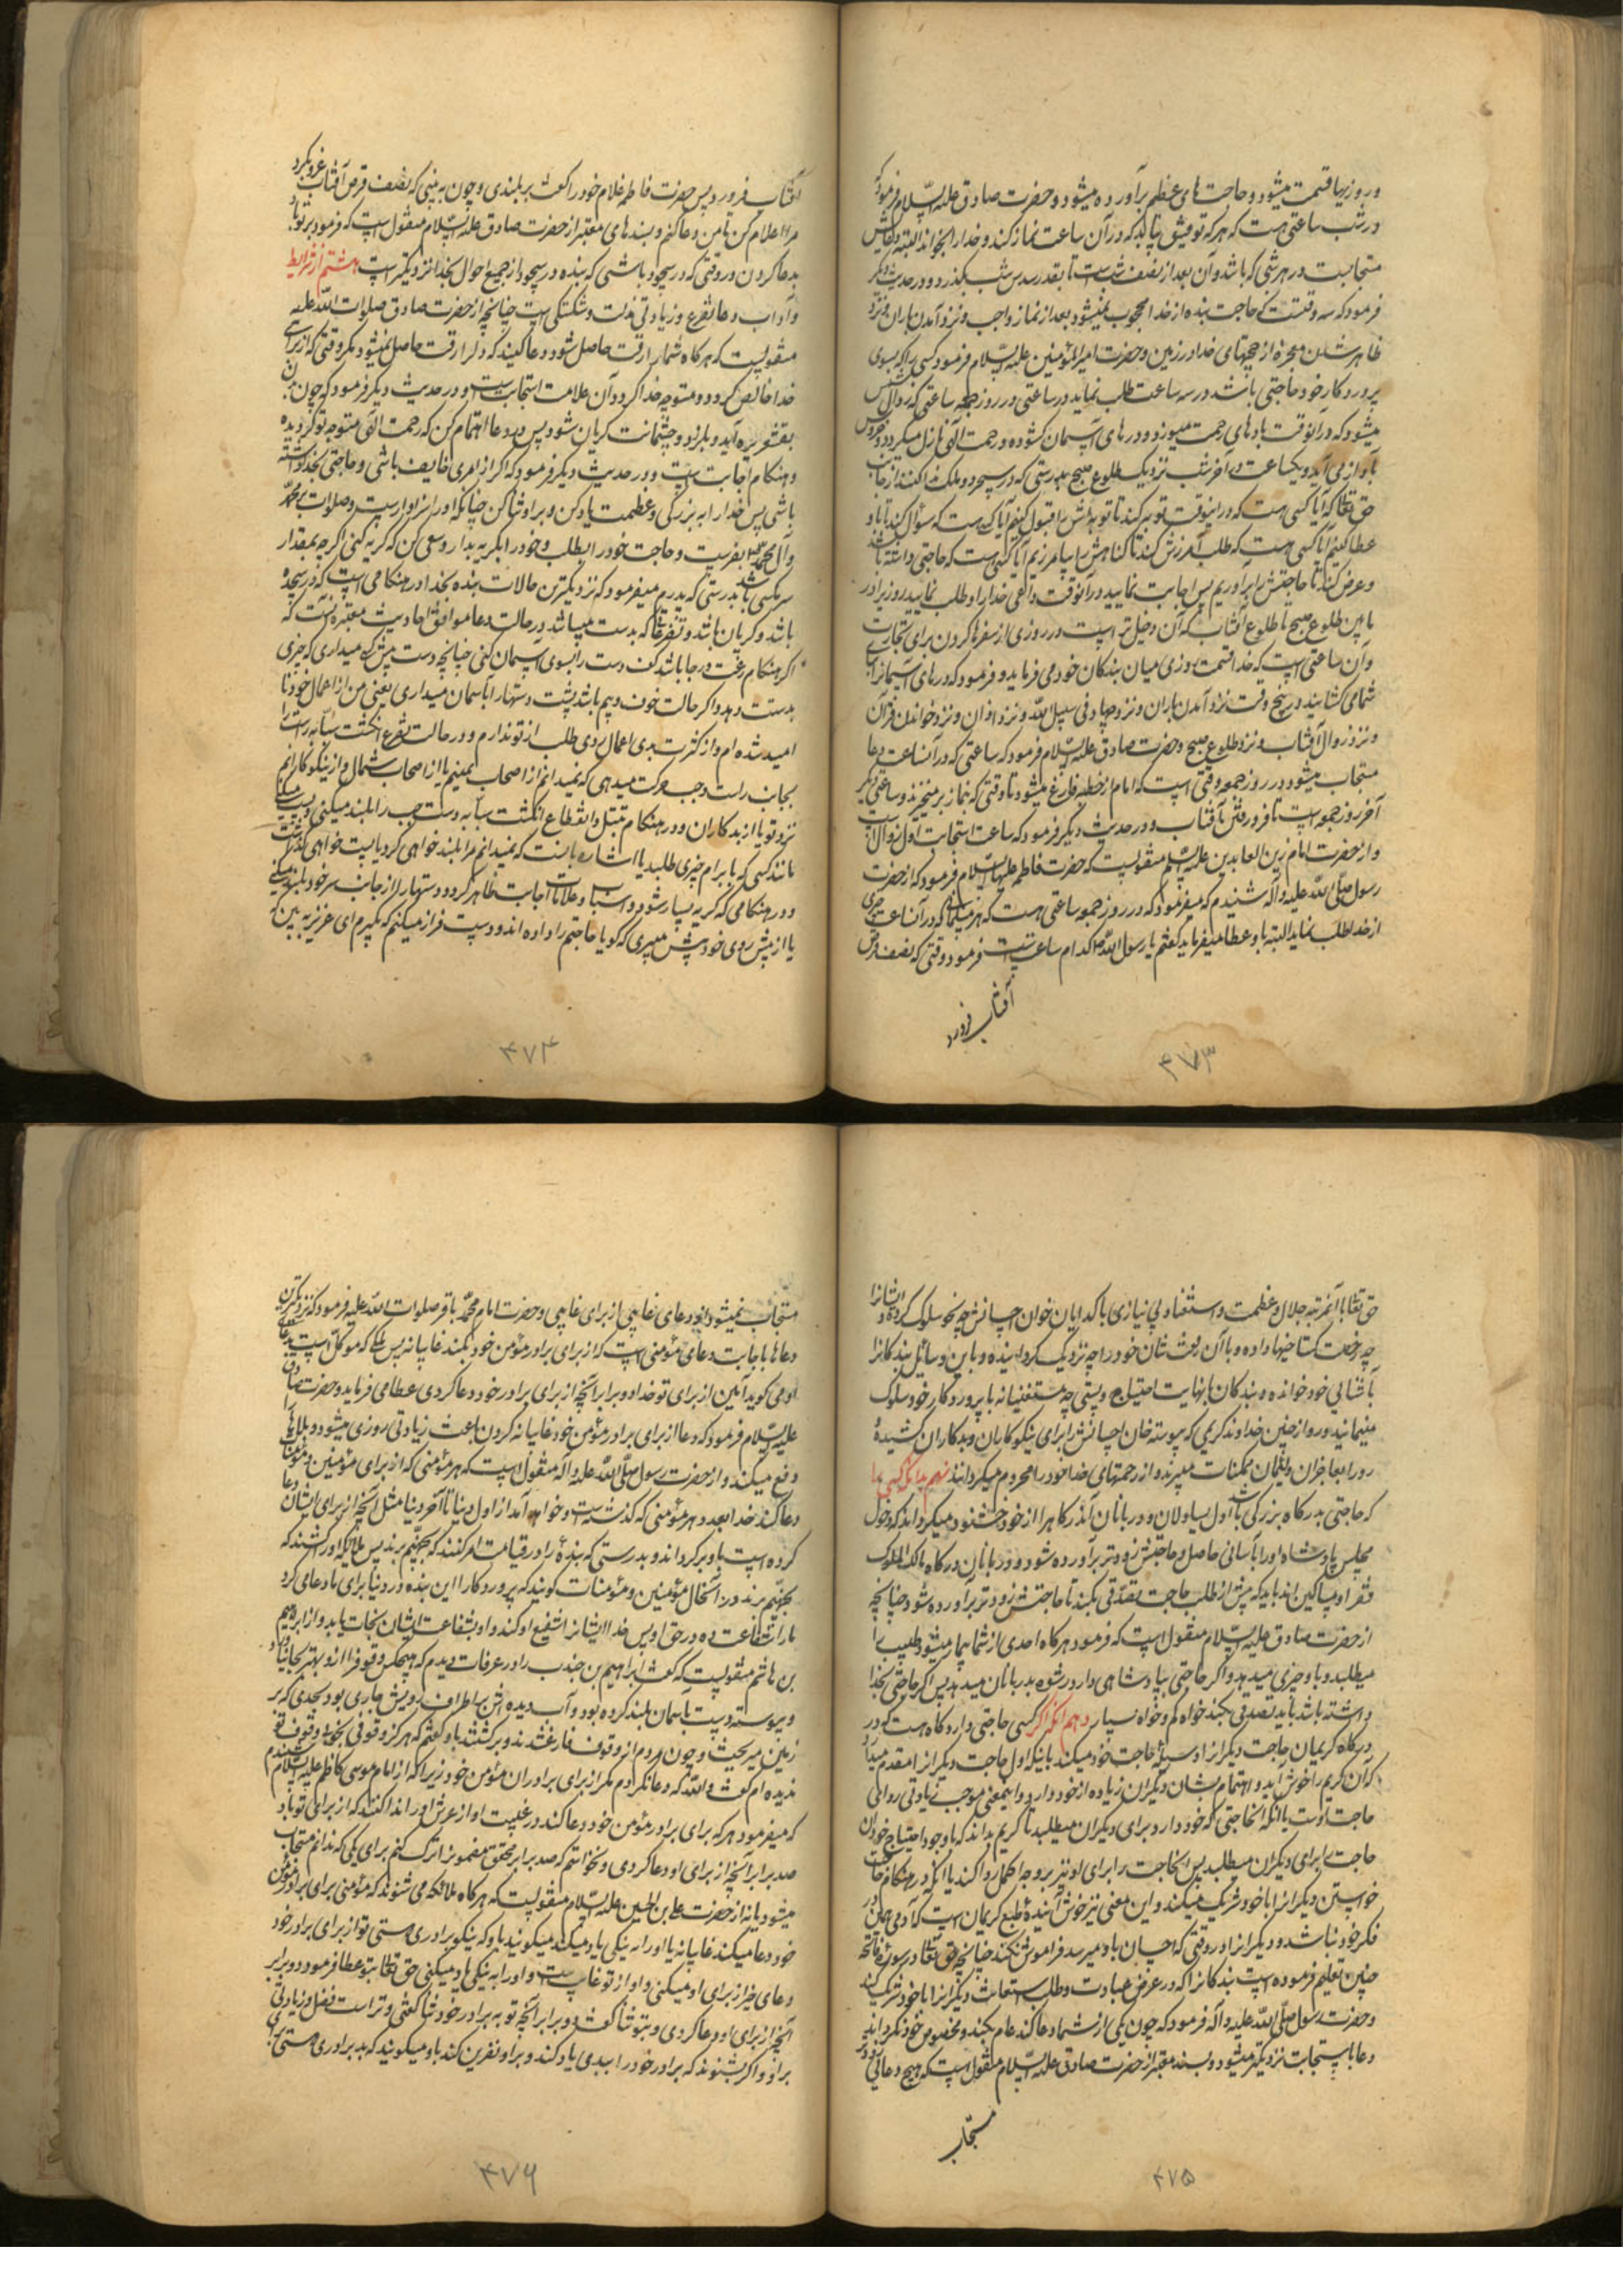 و روزیها قسمت میشود و حاجت های عظیم برآورده میشود و حضرت صادق علیه السلام فرمود که
در شب ساعتی هست که هر که توفیق یابد که در آن ساعت نماز کند و خدا را بخواند البته دعایش
مستجابست در هر شبی که باشد و آن بعد از نصف شب است تا بقدر سدس شب بگذرد و در حدیث دیگر
فرمود که سه وقتست که حاجت بنده از خدا محجوب نمیشود بعد از نماز واجب و نزد آمدن باران و نزد
ظاهر شدن معجزه از حجتهای خدا در زمین و حضرت امیرالمؤمنین علیه السلام فرمود کسی را که بسوی
پروردگار خود حاجتی باشد در سه ساعت طلب نماید در ساعتی در روز جمعه ساعتی که زوال شمس
میشود که در آنوقت بادهای رحمت میوزد و درهای آسمان گشوده و رحمت الهی نازل میگردد و خروس
بآواز می آید و یکساعت در آخر شب نزدیک طلوع صبح بدرستی که در سحر دو ملک ندا کنند از جانب
حق تعالی که آیا کسی هست که در اینوقت توبه کند تا توبه اش را قبول کنیم آیا کسی هست که سؤال کند تا باو
عطا کنیم آیا کسی هست که طلب آمرزش کند تا گناهش را بیامرزیم آیا کسی هست که حاجتی داشته باشد
و عرض کند تا حاجتش را برآوریم پس اجابت نمایید در آنوقت داعی خدا را و طلب نمایید روزی را در
مابین طلوع صبح تا طلوع آفتاب که آن دخیل تر است در روزی از سفرها کردن برای تجارت
و آن ساعتی است که خدا قسمت روزی میان بندگان خود می فرماید و فرمود که درهای آسمان را برای
شما می گشایند در پنج وقت نزد آمدن باران و نزد جهاد فی سبیل الله و نزد اذان و نزد خواندن قرآن
و نزد زوال آفتاب و نزد طلوع صبح و حضرت صادق علیه السلام فرمود که ساعتی که در آنساعت دعا
مستجاب میشود در روز جمعه وقتی است که امام از خطبه فارغ میشود تا وقتی که بنماز برمیخیزند و ساعتی دیگر
آخر روز جمعه است تا فرو رفتن آفتاب و در حدیث دیگر فرمود که ساعت استجابت اول زوال است
و از حضرت امام زین العابدین علیه السلام منقولست که حضرت فاطمه علیها السلام فرمود که از حضرت
رسول صلی الله علیه و آله شنیدم که میفرمود که در روز جمعه ساعتی هست که هر مسلمانی که در آنساعت چیزی
از خدا طلب نماید البته باو عطا میفرماید گفتم یا رسول الله کدام ساعتست فرمود وقتی که نصف قرص
آفتاب فرو رود
۴۷۳
آفتاب فرو رود پس حضرت فاطمه غلام خود را گفت بر بلندی و چون به بینی که نصف قرص آفتاب غروب کرد
مرا اعلام کن تا من دعا کنم و بسندهای معتبر از حضرت صادق علیه السلام منقول است که فرمود بر تو باد
بدعا کردن در وقتی که در سجود باشی که بنده در سجود از جمیع احوال بخدا نزدیکتر است هشتم از شرایط
و آداب دعا تضرع و زیادتی مذلت و شکستگی است چنانچه از حضرت صادق صلوات الله علیه
منقولست که هرگاه شما را رقت حاصل شود دعا کنید که دل را رقت حاصل نمیشود مگر وقتی که از برای
خدا خالص گردد و متوجه خدا گردد آن علامت استجابت است و در حدیث دیگر فرمود که چون بدن
بقشعریره آید و بلرزد و چشمانت گریان شود پس در دعا اهتمام کن که رحمت الهی متوجه تو گردیده
و هنگام اجابت است و در حدیث دیگر فرمود که اگر از امری خایف باشی و حاجتی بخدا داشته
باشی پس خدا را به بزرگی و عظمت یاد کن و بر او ثنا کن چنانکه او را سزاوار است و صلوات بر محمد
و آل محمد بفرست و حاجت خود را بطلب و خود را بگریه بدار و سعی کن که گریه کنی اگرچه بمقدار
سر مگسی باشد بدرستی که پدرم میفرمود که نزدیکترین حالات بنده بخدا در هنگامی است که در سجده
باشد و گریان باشد و تضرعها که بدست میباشد در حالت دعا موافق احادیث معتبره آنست که
اگر هنگام رغبت و رجا باشد کف دست را بسوی آسمان کنی چنانچه دست پیش کسی میداری که چیزی
بدستت دهد و اگر حالت خوف و بیم باشد پشت دستها را بآسمان میداری یعنی من از اعمال خود نا
امید شده ام و از کثرت بدی اعمال روی طلب از تو ندارم و در حالت تضرع انگشت سبابه راست را
بجانب راست و چپ حرکت میدهی که نمیدانم از اصحاب یمینم یا از اصحاب شمال و از نیکوکارانم
نزد تو یا از بدکاران و در هنگام تبتل و انقطاع انگشت سبابه دست چپ را بلند میکنی و پست میکنی
مانند کسی که بابرام چیزی طلبد یا اشاره باینست که نمیدانم مرا بلند خواهی کرد یا پست خواهی گذاشت
و در هنگامی که گریه بسیار شود و اسباب و علامات اجابت ظاهر گردد دستها را از جانب سر خود بلند میکنی
یا از پیش روی خود پیش میبری که گویا حاجتم را داده اند و دست فراز میکنم که بگیرم ای عزیز به بین که
۴۷۴
حق تعالی با آنمرتبه جلال و عظمت و استغنا و بی نیازی با گدایان خوان احسانش چه نحو سلوک کرده و ایشانرا
چه رخصت گستاخیها داده و با آن رفعت شأن خود را چه نزدیک گردانیده و باین وسایل بندگانرا
بآشنایی خود خوانده و بندگان با نهایت احتیاج و پستی چه مستغنیانه با پروردگار خود سلوک
مینمایند و رو از چنین خداوند کریمی که پیوسته خوان احسانش را برای نیکوکاران و بدکاران کشیده
رو را بعاجزان ولئیمان ممکنات میبرند و از رحمتهای خدا خود را محروم میگردانند نهم بدانکه کسی را
که حاجتی بدرگاه بزرگی باشد اول یساولان و دربانان آندرگاه را از خود خوشنود میگرداند که دخول
مجلس پادشاه او را بآسانی حاصل و حاجتش زودتر برآورده شود و دربانان درگاه مالک الملوک
فقرا و مساکین اند باید که پیش از طلب حاجت تصدقی بکند تا حاجتش زودتر برآورده شود چنانچه
از حضرت صادق علیه السلام منقول است که فرمود هرگاه احدی از شما بیمار میشود طبیب را
میطلبد و باو چیزی میدهد و اگر حاجتی بپادشاهی دارد رشوه بدربانان میدهد پس اگر حاجتی بخدا
داشته باشد باید تصدقی بکند خواه کم و خواه بسیار دهم آنکه اگر کسی حاجتی دارد گاه هست که در
درگاه کریمان حاجت دیگرانرا وسیلهٔ حاجت خود میکند باینکه اول حاجت دیگرانرا مقدم میدارد
که آن کریم را خوش آید و اهتمام بشأن دیگران زیاده از خود دارد و اینمعنی موجب زیادتی روائی
حاجت اوست یا آنکه آنحاجتی که خود دارد برای دیگران میطلبد تا کریم بداند که باوجود احتیاج خود آن
حاجت را برای دیگران میطلبد پس آنحاجت را برای او نیز بر وجه اکمل روا کند یا آنکه در هنگام حاجت
خواستن دیگرانرا با خود شریک میکند و این معنی نیز خوش آینده طبع کریمان است که آدمی همین در
فکر خود نباشد و دیگرانرا در وقتی که احسان باو میرسد فراموش نکند چنانچه حق تعالی در سورهٔ فاتحه
چنین تعلیم فرموده است بندگانرا که در عرض عبادت و طلب استعانت دیگرانرا با خود شریک کنند
و حضرت رسول صلی الله علیه و آله فرمود که چون یکی از شما دعا کند عام بکند و مخصوص خود نگرداند
دعا باستجابت نزدیکتر میشود و بسند معتبر از حضرت صادق علیه السلام منقول است که هیچ دعائی زودتر
مستجاب
۴۷۵
مستجاب نمیشود از دعای غایبی از برای غایبی و حضرت امام محمد باقر صلوات الله علیه فرمود که نزدیکترین
دعاها باجابت دعای مؤمنی است که از برای برادر مؤمن خود بکند غایبانه پس ملکی که موکل است بدعای
او می گوید آمین از برای تو خدا دو برابر آنچه از برای برادر خود دعا کردی عطا می فرماید و حضرت صادق
علیه السلام فرمود که دعا از برای برادر مؤمن خود غایبانه کردن باعث زیادتی روزی میشود و بلاها را
دفع میکند و از حضرت رسول صلی الله علیه و آله منقول است که هر مؤمنی که از برای مؤمنین و مؤمنات
دعا کند خدا بعدد هر مؤمنی که گذشته است و خواهد آمد از اول دنیا تا آخر دنیا مثل آنچه از برای ایشان دعا
کرده است باو برگرداند و بدرستی که بندهٔ را در قیامت امر کنند که بجهنم برند پس ملائکه او را کشند که
بجهنم برند در آنحال مؤمنین و مؤمنات گویند که پروردگارا این بنده در دنیا برای ما دعا می کرد
ما را شفاعت ده در حق او پس خدا ایشانرا شفیع او کند و او بشفاعت ایشان نجات یابد و از ابراهیم
بن هاشم منقولست که گفت ابراهیم بن جندب را در عرفات دیدم که هیچکس وقوف را از او بهتر بجا نیاورد
و پیوسته دست بآسمان بلند کرده بود و آب دیده اش بر اطراف رویش جاری بود بحدی که بر
زمین میریخت و چون مردم از وقوف فارغ شدند و برگشتند باو گفتم که هرگز وقوفی بخوبی وقوف تو
ندیده ام گفت والله که دعا نکردم مگر از برای برادران مؤمن خود زیرا که از امام موسی کاظم علیه السلام شنیدم
که میفرمود هر که برای برادر مؤمن خود دعا کند در غیبت او از عرش او را ندا کنند که از برای تو باد
صد برابر آنچه از برای او دعا کردی و نخواستم که صد برابر محقق مضمونرا ترک کنم برای یکی که ندانم مستجاب
میشود یا نه از حضرت علی بن الحسین علیه السلام منقولست که هرگاه ملائکه می شنوند که مؤمنی برای برادر مؤمن
خود دعا میکند غایبانه یا او را به نیکی یاد میکند میگویند باو که نیکو برادری هستی تو از برای برادر خود
دعای خیر از برای او میکنی و او از تو غایب است و او را به نیکی یاد میکنی حق تعالی بتو عطا فرمود دو برابر
آنچه از برای او دعا کردی و بتو ثنا گفت دو برابر آنچه تو به برادر خود ثنا گفتی و تراست فضل و زیادتی
بر او و اگر بشنوند که برادر خود را ببدی یاد کند و بر او نفرین کند باو میگویند که بد برادری هستی برای
۴۷۶